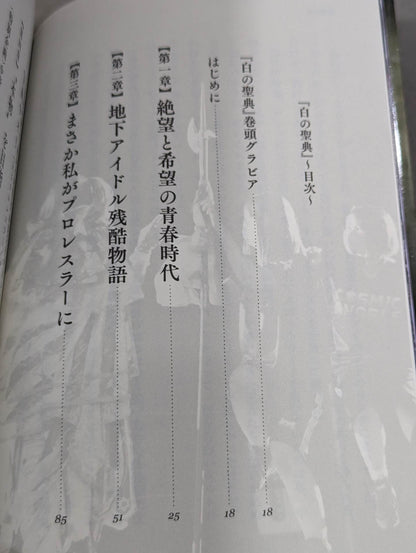 『白の聖典』～目次～
『白の聖典』巻頭グラビア 18
はじめに 18
【第一章】絶望と希望の青春時代 25
【第二章】地下アイドル残酷物語 51
【第三章】まさか私がプロレスラーに 85